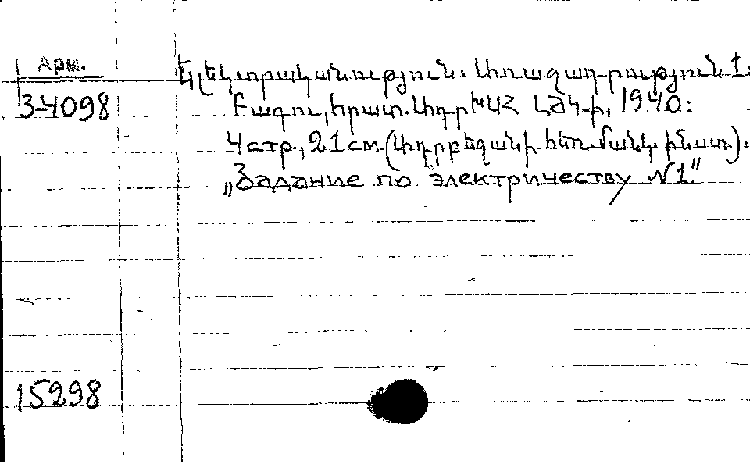 Арм.
3-4098
Էլեկտրականություն. Առաջադրություն 1.
Բագու, հրատ. Ադրխսհ ԼԺԿ-ի, 1940:
4 стр., 21 см. (Ադրբեջանի հեռ. մանկ. ինստ).
„Задание по электричеству №1."
15298